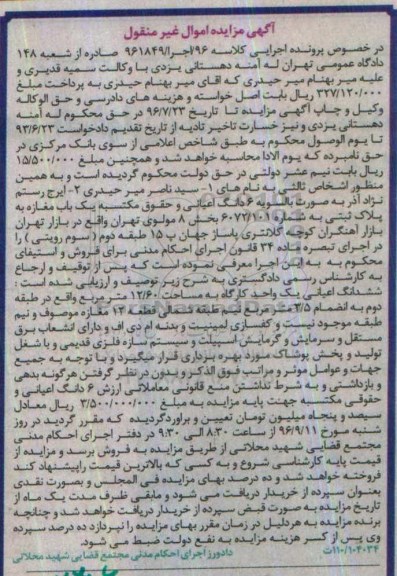 آگهی مزایده اموال غیر منقول
در خصوص پرونده اجرایی کلاسه ۹۶/اجرا/۹۶۱۸۴۹ صادره از شعبه ۱۴۸
دادگاه عمومی تهران له آمنه دهستانی یزدی با وکالت سمیه قدیری و
علیه میر بهنام میر حیدری که آقای میر بهنام میر حیدری به پرداخت مبلغ
۳۲۷/۱۲۰/۰۰۰ ریال بابت اصل خواسته و هزینه های دادرسی و حق الوکاله
وکیل و چاپ آگهی مزایده تا تاریخ ۹۶/۷/۲۳ در حق محکوم له آمنه
دهستانی یزدی و نیز خسارت تاخیر تادیه از تاریخ تقدیم دادخواست ۹۳/۶/۲۳
تا یوم الوصول محکوم به طبق شاخص اعلامی از سوی بانک مرکزی در
حق نامبرده که یوم الادا محاسبه خواهد شد و همچنین مبلغ ۱۵/۵۰۰/۰۰۰
ریال بابت نیم عشر دولتی در حق دولت محکوم گردیده است و به همین
منظور اشخاص ثالثی به نام های ۱- سید ناصر میر حیدری ۲- ایرج رستم
نژاد آذر به صورت بالسویه ۶ دانگ اعیانی و حقوق مکتسبه یک باب مغازه به
پلاک ثبتی به شماره ۶۰۷۲/۱۰۱ بخش ۸ مولوی تهران واقع در بازار تهران
بازار آهنگران کوچه کلانتری پاساژ جهان پ ۱۵ طبقه دوم ( سوم رویتی ) را
در اجرای تبصره ماده ۳۴ قانون اجرای احکام مدنی برای فروش و استیفای
محکوم به به این اجرا معرفی نموده است که پس از توقیف و ارجاع
به کارشناس رسمی دادگستری به شرح زیر توصیف و ارزیابی شده است :
ششدانگ اعیانی یک واحد کارگاه به مساحت ۱۲/۶۰ متر مربع واقع در طبقه
دوم به انضمام ۳/۵ متر مربع نیم طبقه شمالی قطعه ۱۳ مغازه موصوف و نیم
طبقه موجود نیست و کفسازی لمینیت و بدنه ام دی اف و دارای انشعاب برق
مستقل و سرمایش و گرمایش اسپیلت و سیستم سازه فلزی قدیمی و با شغل
تولید و پخش پوشاک مورد بهره برداری قرار میگیرد و با توجه به جمیع
جهات و عوامل موثر و مراتب فوق الذکر و بدون در نظر گرفتن هرگونه بدهی
و بازداشتی و به شرط نداشتن منع قانونی معاملاتی ارزش ۶ دانگ اعیانی و
حقوقی مکتسبه جهت پایه مزایده به مبلغ ۳/۵۰۰/۰۰۰/۰۰۰ ریال معادل
سیصد و پنجاه میلیون تومان تعیین و براوردگردیده که مقرر گردید در روز
شنبه مورخ ۹۶/۹/۱۱ از ساعت ۸:۳۰ الی ۹:۳۰ در دفتر اجرای احکام مدنی
مجتمع قضایی شهید محلاتی از طریق مزایده به فروش برسد و مزایده از
قیمت پایه کارشناسی شروع و به کسی که بالاترین قیمت راپیشنهاد کند
فروخته خواهد شد و ده درصد بهای مزایده فی المجلس و بصورت نقدی
بعنوان سپرده از خریدار دریافت می شود و مابقی ظرف مدت یک ماه از
تاریخ مزایده به صورت قبض سپرده از خریدار دریافت خواهد شد و چنانچه
برنده مزایده به هردلیل در زمان مقرر بهای مزایده را نپردازد ده درصد سپرده
وی پس از کسر هزینه مزایده به نفع دولت ضبط می شود.
۱۱۰/۱۰۴۰۳۴ث دادورز اجرای احکام مدنی مجتمع قضایی شهید محلاتی